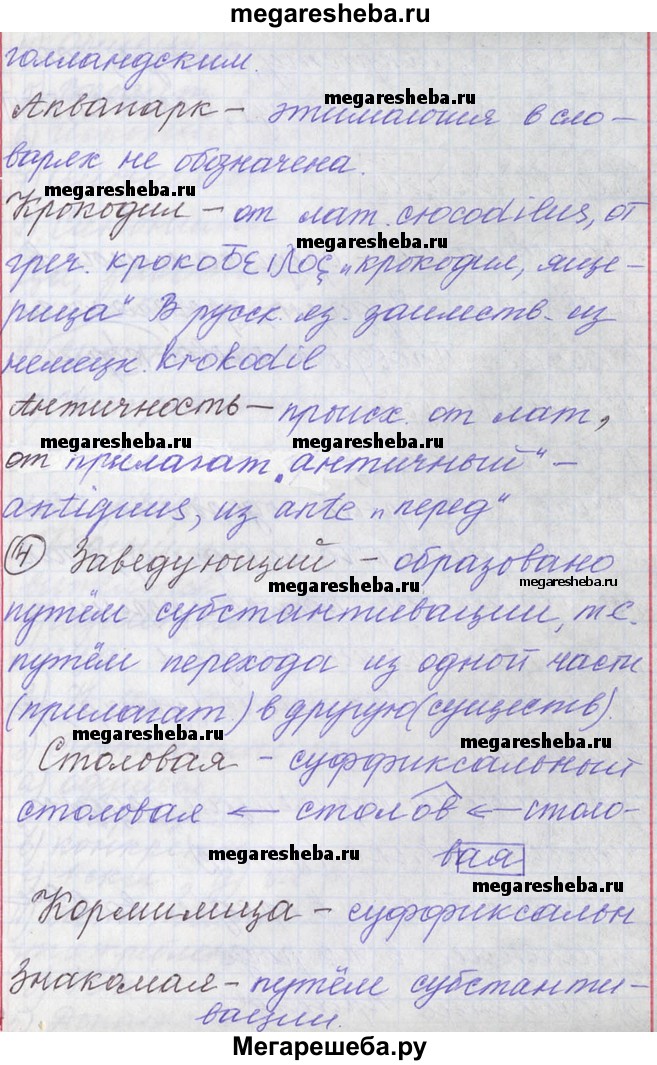 megaresheba.ru
голландским.
Аквапарк – этимология в сло-
megaresheba.ru
варях не обозначена.
megaresheba.ru
Крокодил – от лат. crocodilus, от
греч. крокоδειλος „крокодил, яще-
рица“ В русск. яз. заимств. из
немецк. Krokodil
megaresheba.ru
Античность – происх. от лат,
megaresheba.ru
от прилагат. „античный“ –
antiquus, из ante „перед“
④ Заведующий – образовано
megaresheba.ru
megaresheba.ru
путём субстантивации, т.е.
путём перехода из одной части
(прилагат.) в другую (существ)
megaresheba.ru
megaresheba.ru
Столовая – суффиксальный
столовая ← столов ← столо-
megaresheba.ru
вая
megaresheba.ru
Кормилица – суффиксальн
Знакомая – путём субстанти-
вации.
Мегарешеба.ру